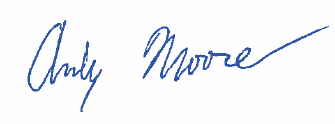 Andy Moore